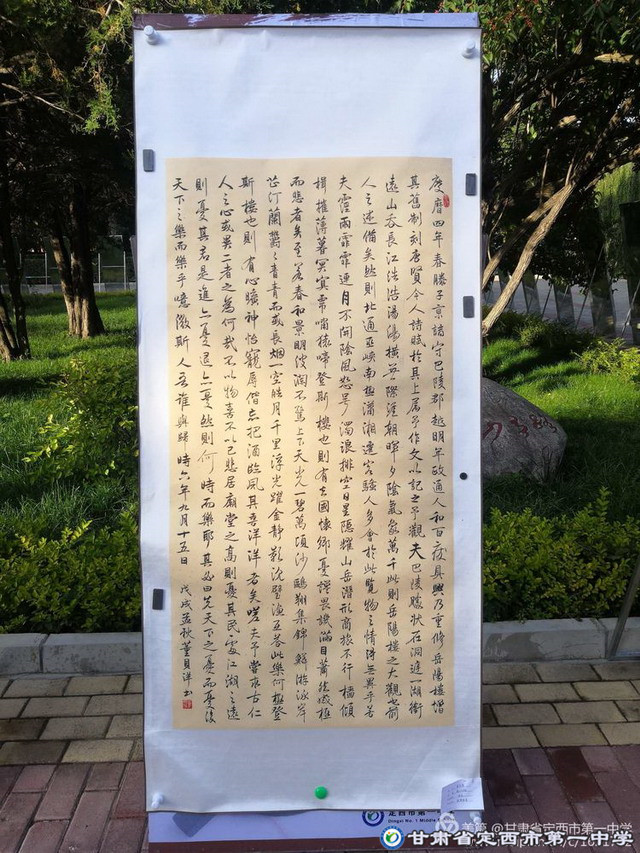 慶曆四年春滕子京謫守巴陵郡越明年政通人和百廢具興乃重修岳陽樓增
其舊制刻唐賢今人詩賦於其上屬予作文以記之予觀夫巴陵勝狀在洞庭一湖銜
遠山吞長江浩浩湯湯橫無際涯朝暉夕陰氣象萬千此則岳陽樓之大觀也前
人之述備矣然則北通巫峽南極瀟湘遷客騷人多會於此覽物之情得無異乎若
夫霪雨霏霏連月不開陰風怒號濁浪排空日星隱耀山岳潛形商旅不行檣傾
楫摧薄暮冥冥虎嘯猿啼登斯樓也則有去國懷鄉憂讒畏譏滿目蕭然感極
而悲者矣至若春和景明波瀾不驚上下天光一碧萬頃沙鷗翔集錦鱗游泳岸
芷汀蘭鬱鬱青青而或長煙一空皓月千里浮光躍金靜影沈璧漁歌互答此樂何極登
斯樓也則有心曠神怡寵辱偕忘把酒臨風其喜洋洋者矣嗟夫予嘗求古仁
人之心或異二者之為何哉不以物喜不以己悲居廟堂之高則憂其民處江湖之遠
則憂其君是進亦憂退亦憂然則何時而樂耶其必曰先天下之憂而憂後
天下之樂而樂乎噫微斯人吾誰與歸時六年九月十五日
戊戌孟秋董洋书
定西市第一
Dingxi No. 1 Middle
美篇@甘肃省定西市第一中学
甘肃省定西市第一中学